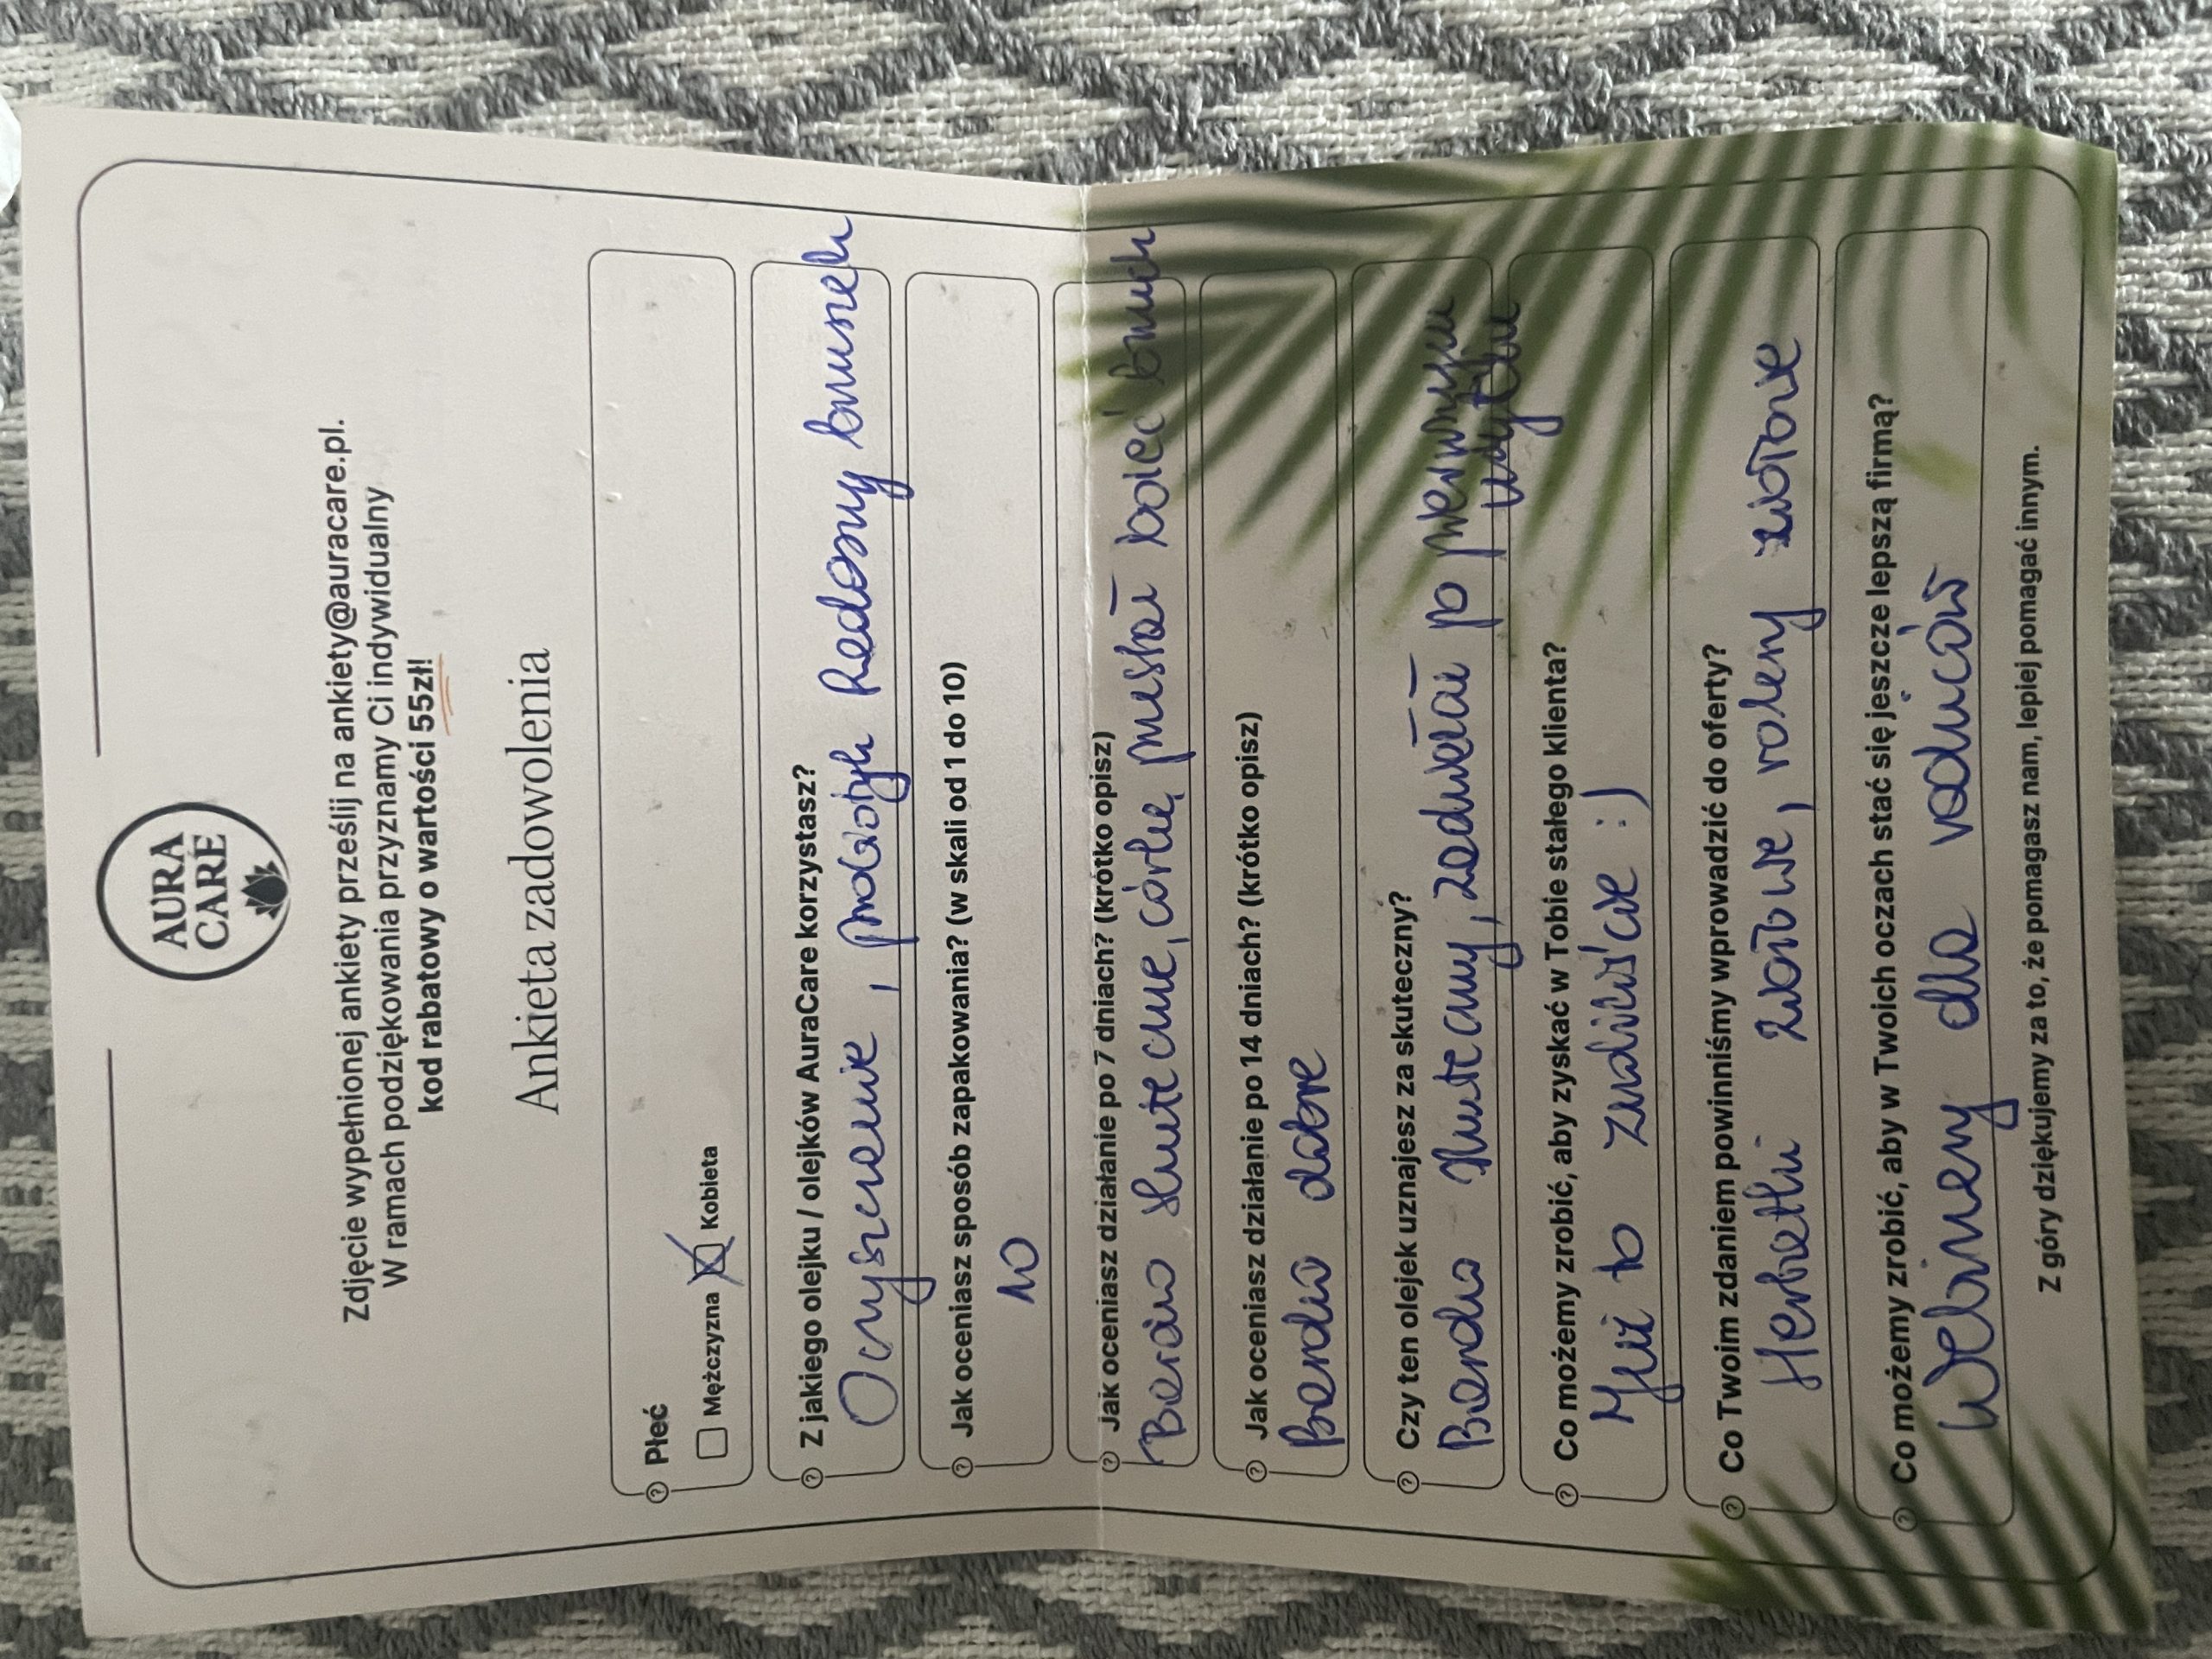 AURA
CARE
Zdjęcie wypełnionej ankiety prześlij na ankiety@auracare.pl.
W ramach podziękowania przyznamy Ci indywidualny
kod rabatowy o wartości 55zł!
Ankieta zadowolenia
Płeć
Mężczyzna Kobieta
Z jakiego olejku / olejków AuraCare korzystasz?
Oczyszczenie, Radosny brzuszek
Jak oceniasz sposób zapakowania? (w skali od 1 do 10)
10
Jak oceniasz działanie po 7 dniach? (krótko opisz)
Bardzo skuteczne, córkę przestał boleć brzuch
Jak oceniasz działanie po 14 dniach? (krótko opisz)
Bardzo dobre
Czy ten olejek uznajesz za skuteczny?
Bardzo skuteczny, zadziałał po pierwszym
użyciu
Co możemy zrobić, aby zyskać w Tobie stałego klienta?
Już to zrobiliście :)
Co Twoim zdaniem powinniśmy wprowadzić do oferty?
Herbatki ziołowe, ziołowe
Co możemy zrobić, aby w Twoich oczach stać się jeszcze lepszą firmą?
Webinary dla rodziców
Z góry dziękujemy za to, że pomagasz nam, lepiej pomagać innym.